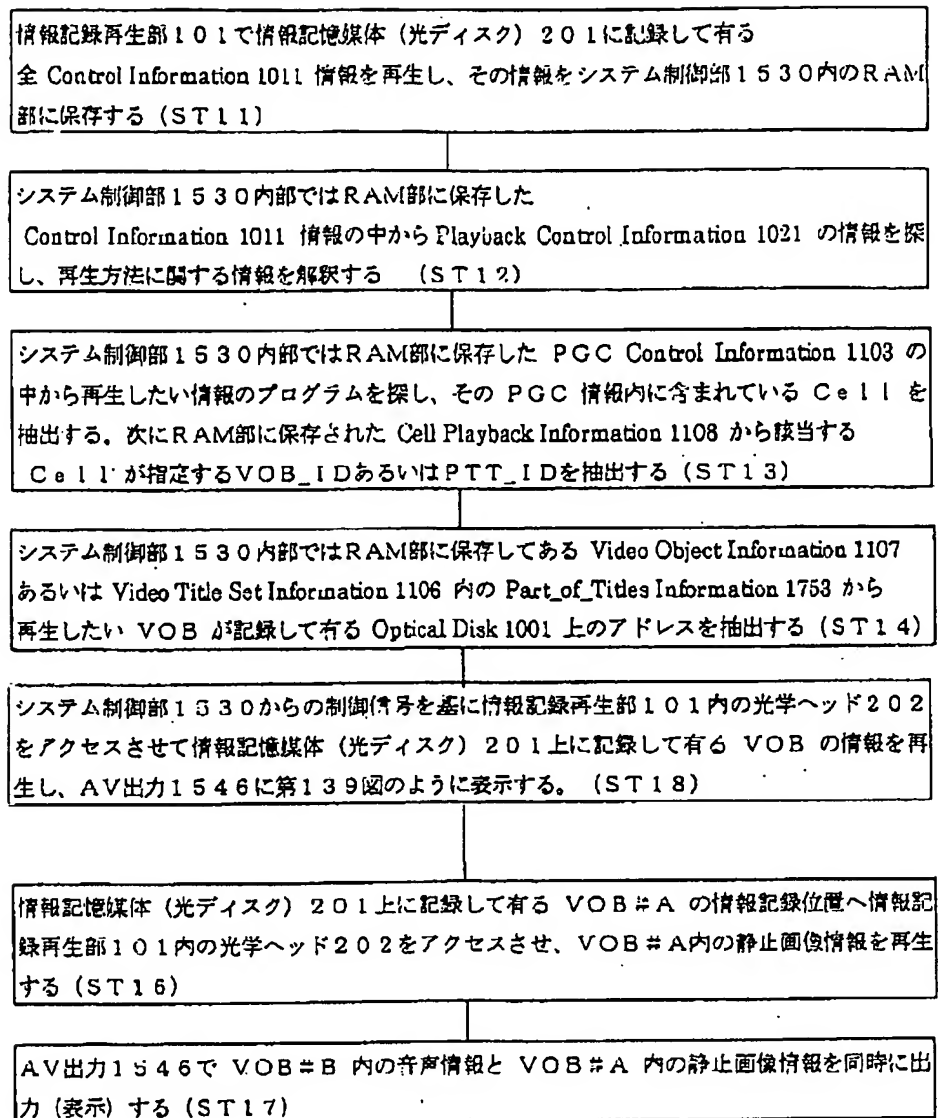 情報記録再生部１０１で情報記憶媒体（光ディスク）２０１に記録して有る
全 Control Information 1011 情報を再生し、その情報をシステム制御部１５３０内のＲＡＭ
部に保存する（ＳＴ１１）
システム制御部１５３０内部ではＲＡＭ部に保存した
Control Information 1011 情報の中から Playback Control Information 1021 の情報を探
し、再生方法に関する情報を解釈する （ＳＴ１２）
システム制御部１５３０内部ではＲＡＭ部に保存した PGC Control Information 1103 の
中から再生したい情報のプログラムを探し、その PGC 情報内に含まれている Ｃｅｌｌ を
抽出する。次にＲＡＭ部に保存された Cell Playback Information 1108 から該当する
Ｃｅｌｌ が指定するＶＯＢ_ＩＤあるいはＰＴＴ_ＩＤを抽出する（ＳＴ１３）
システム制御部１５３０内部ではＲＡＭ部に保存してある Video Object Information 1107
あるいは Video Title Set Information 1106 内の Part_of_Titles Information 1753 から
再生したい VOB が記録して有る Optical Disk 1001 上のアドレスを抽出する（ＳＴ１４）
システム制御部１５３０からの制御信号を基に情報記録再生部１０１内の光学ヘッド２０２
をアクセスさせて情報記憶媒体（光ディスク）２０１上に記録して有る VOB の情報を再
生し、AV出力１５４６に第１３９図のように表示する。（ＳＴ１８）
情報記憶媒体（光ディスク）２０１上に記録して有る VOB＃A の情報記録位置へ情報記
録再生部１０１内の光学ヘッド２０２をアクセスさせ、VOB＃A内の静止画像情報を再生
する（ＳＴ１６）
AV出力１５４６で VOB＃B 内の音声情報と VOB＃A 内の静止画像情報を同時に出
力（表示）する（ＳＴ１７）